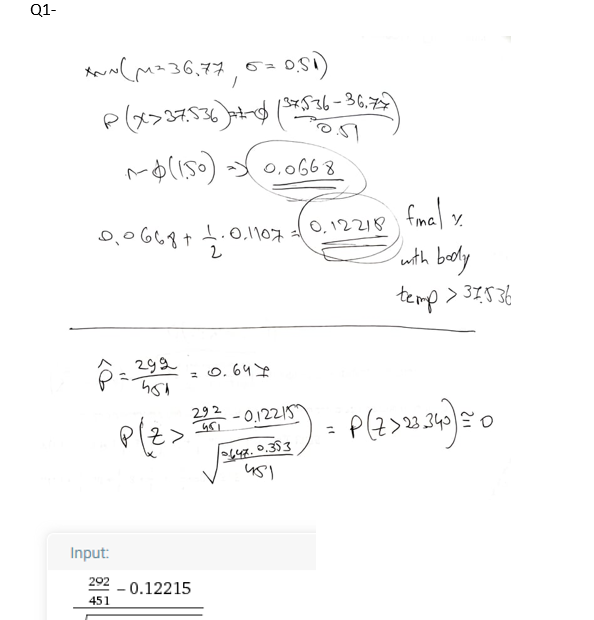 Q1-
x~N(μ=36.77, σ=0.51)
P(x>37.536)=1-Φ(37.536-36.77/0.51)
1-Φ(1.50) => 0.0668
0.0668+1/2·0.1107=0.12218 final %
with body
temp > 37.536
p̂=292/451=0.647
P(Z>292/451-0.12215/√0.647·0.353/451)=P(Z>23.340)≅0
Input:
292/451-0.12215